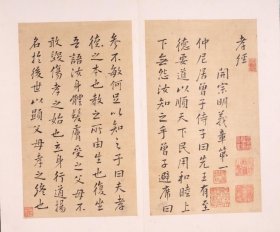 孝經
開宗明義章第一
仲尼居曾子侍子曰先王有至
德要道以順天下民用和睦上
下無怨汝知之乎曾子避席曰
參不敏何足以知之子曰夫孝
德之本也教之所由生也復坐
吾語汝身體髮膚受之父母不
敢毀傷孝之始也立身行道揚
名於後世以顯父母孝之終也